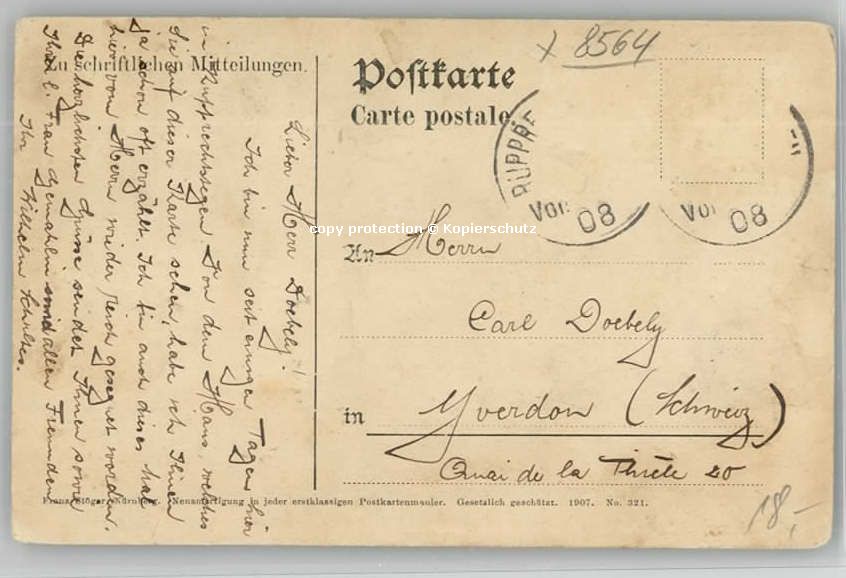 x 8564
Zu schriftlichen Mitteilungen.
Postkarte
Carte postale.
RUPPR
Vor
08
Vor
08
An Herrn
Carl Doebely
in Yverdon (Schweiz)
Quai de la Thièle 20
Lieber Herr Doebely!
Ich bin nun seit einigen Tagen hier
in Rupprechtstegen. Von dem Haus, welches
Sie auf dieser Karte sehen, habe ich Ihnen
ja schon oft erzählt. Ich bin auch dieses Mal
hier vom Herrn wieder reich gesegnet worden.
Die herzlichsten Grüsse sendet Ihnen sowie
Ihrer l. Frau Gemahlin und allen Freunden
Ihr Wilhelm
copy protection © Kopierschutz
Franz Stöger, Nürnberg. Neuanfertigung in jeder erstklassigen Postkartenmanier. Gesetzlich geschützt. 1907. No. 321.
18,-